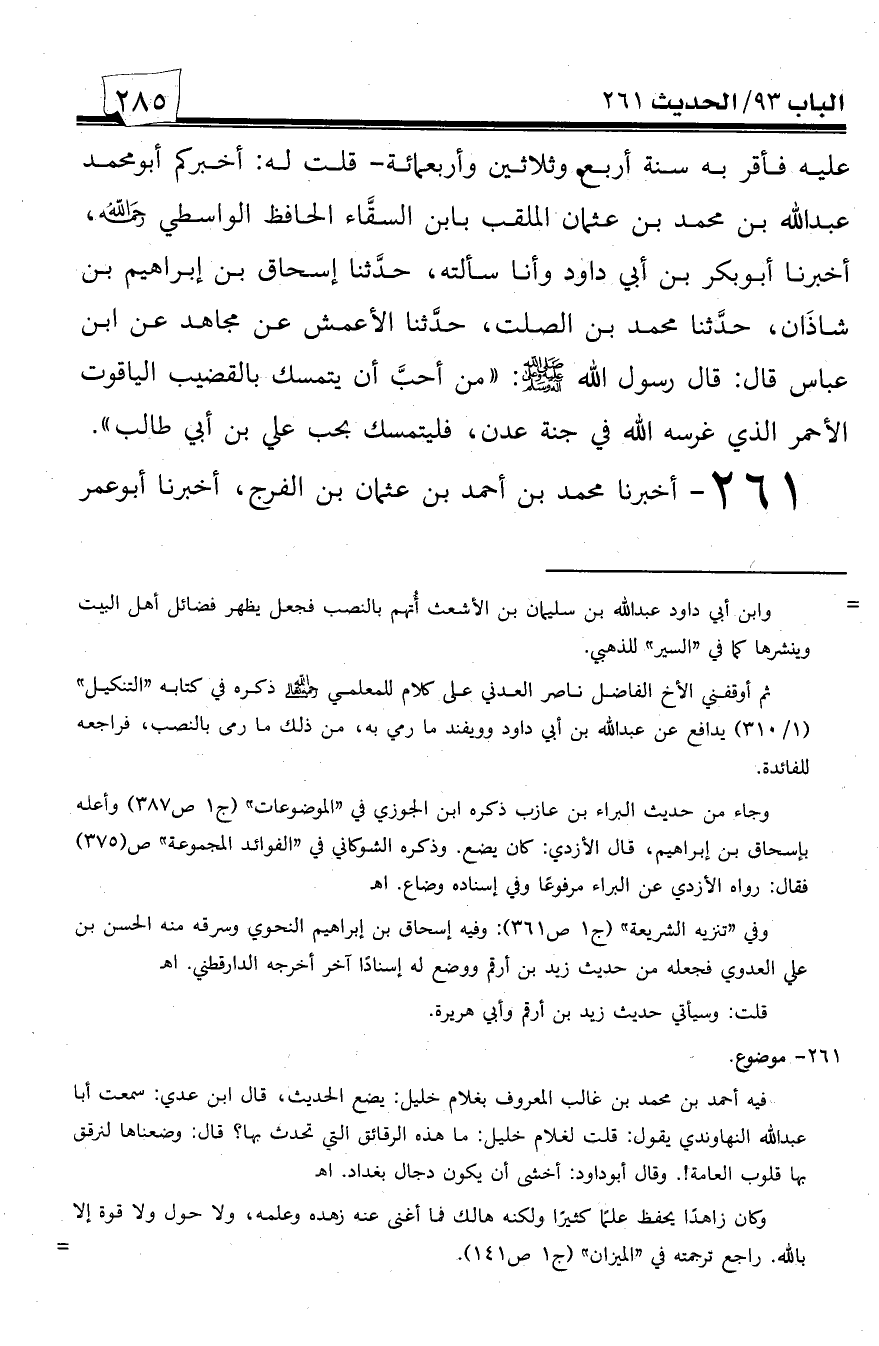 الباب ٩٣/ الحديث ٢٦١
٢٨٥
عليه فأقر به سنة أربع وثلاثين وأربعمائة- قلت له: أخبركم أبومحمد
عبدالله بن محمد بن عثمان الملقب بابن السقَّاء الحافظ الواسطي رحمه الله،
أخبرنا أبوبكر بن أبي داود وأنا سألته، حدَّثنا إسحاق بن إبراهيم بن
شاذَان، حدَّثنا محمد بن الصلت، حدَّثنا الأعمش عن مجاهد عن ابن
عباس قال: قال رسول الله ﷺ: «من أحبَّ أن يتمسك بالقضيب الياقوت
الأحمر الذي غرسه الله في جنة عدن، فليتمسك بحب علي بن أبي طالب».
٢٦١- أخبرنا محمد بن أحمد بن عثمان بن الفرج، أخبرنا أبوعمر
= وابن أبي داود عبدالله بن سليمان بن الأشعث أُتهم بالنصب فجعل يظهر فضائل أهل البيت
وينشرها كما في "السير" للذهبي.
ثم أوقفني الأخ الفاضل ناصر العدني على كلام للمعلمي رحمه الله ذكره في كتابه "التنكيل"
(٣١٠/١) يدافع عن عبدالله بن أبي داود وويفند ما رمي به، من ذلك ما رمى بالنصب، فراجعه
للفائدة.
وجاء من حديث البراء بن عازب ذكره ابن الجوزي في "الموضوعات" (ج١ ص٣٨٧) وأعله
بإسحاق بن إبراهيم، قال الأزدي: كان يضع. وذكره الشوكاني في "الفوائد المجموعة" ص(٣٧٥)
فقال: رواه الأزدي عن البراء مرفوعًا وفي إسناده وضاع. اهـ
وفي "تنزيه الشريعة" (ج١ ص٣٦١): وفيه إسحاق بن إبراهيم النحوي وسرقه منه الحسن بن
علي العدوي فجعله من حديث زيد بن أرقم ووضع له إسنادًا آخر أخرجه الدارقطني. اهـ
قلت: وسيأتي حديث زيد بن أرقم وأبي هريرة.
٢٦١- موضوع.
فيه أحمد بن محمد بن غالب المعروف بغلام خليل: يضع الحديث، قال ابن عدي: سمعت أبا
عبدالله النهاوندي يقول: قلت لغلام خليل: ما هذه الرقائق التي تحدث بها؟ قال: وضعناها لنرقق
بها قلوب العامة!. وقال أبوداود: أخشى أن يكون دجال بغداد. اهـ
وكان زاهدًا يحفظ علمًا كثيرًا ولكنه هالك فما أغنى عنه زهده وعلمه، ولا حول ولا قوة إلا
بالله. راجع ترجمته في "الميزان" (ج١ ص١٤١). =